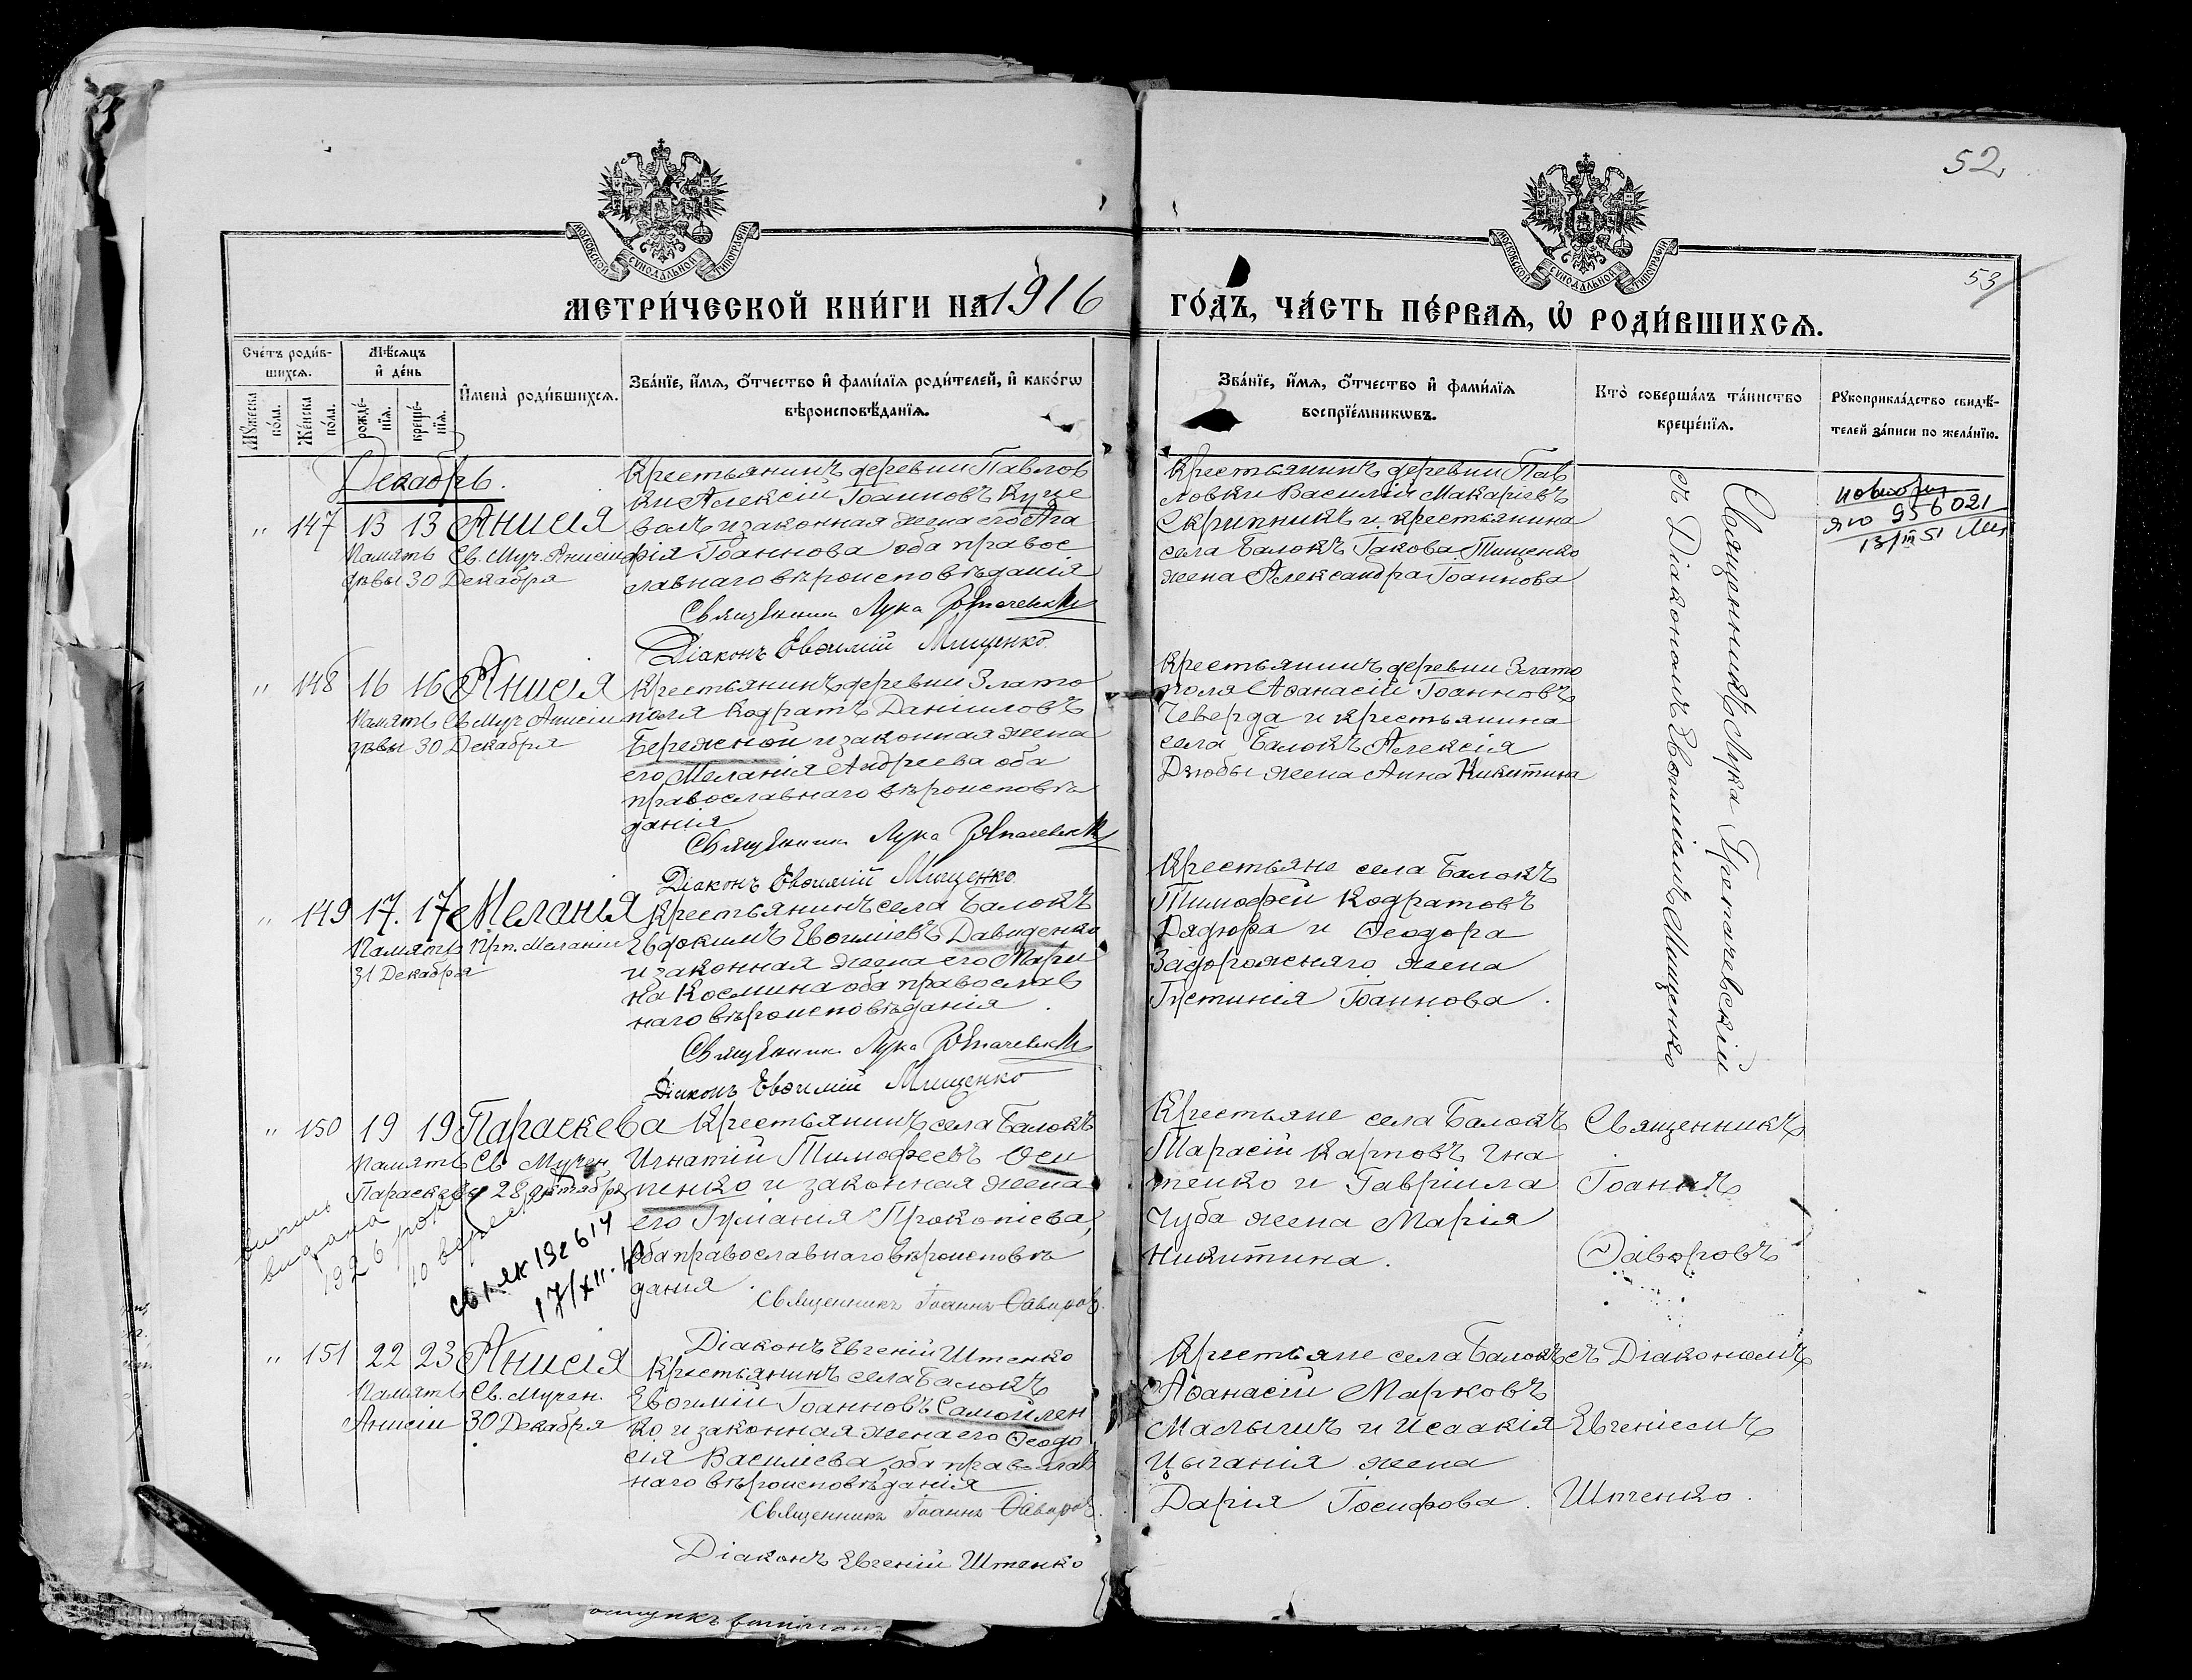 52
53
МОСКОВСКОЙ СѴНОДАЛЬНОЙ ТИПОГРАФІИ
МОСКОВСКОЙ СѴНОДАЛЬНОЙ ТИПОГРАФІИ
МЕТРИ́ЧЕСКОЙ КНИ́ГИ НА 1916
ГО́ДЪ, ЧА́СТЬ ПЕ́РВАѦ, Ѡ РОДИ́ВШИХСѦ.
Сче́тъ роди́в-
шихсѧ.
Мѣ́сѧцъ
и҆ де́нь
Мꙋ́жеска
по́ла.
Же́нска
по́ла.
рожде́-
нїѧ.
креще́-
нїѧ.
И҆мена̀ роди́вшихсѧ.
Зва́нїе, и҆́мѧ, ѻ҆́тчество и҆ фами́лїѧ роди́телей, и҆ како́гѡ
вѣроисповѣ́данїѧ.
Зва́нїе, и҆́мѧ, ѻ҆́тчество и҆ фами́лїѧ
воспрїе́мникѡвъ.
Кто̀ соверша́лъ та́инство
креще́нїѧ.
Рꙋкоприкла́дство свидѣ́-
телей за́писи по жела́нїю.
Декабрь.
" 147 13 13 Анисія
Память Св. Муч. Анисіи
дѣвы 30 Декабря
Крестьянинъ деревни Павлов
ки Алексій Іоанновъ Куце
волъ и законная жена его Ага
фія Іоаннова оба правос
лавнаго вѣроисповѣданія
Священникъ Лука
Діаконъ Евѳимій Мищенко
Крестьянинъ деревни Пав
ловки Василій Макаріевъ
Скрипникъ и крестьянина
села Балокъ Іакова Тищенко
жена Александра Іоаннова
Священникъ Лука Гропачевскій
съ Діакономъ Евѳиміемъ Мищенко
956021
13/III 51
" 148 16 16 Анисія
Память Св Муч Анисіи
дѣвы 30 Декабря
Крестьянинъ деревни Злато
поля Кодратъ Даніиловъ
Бережной и законная жена
его Меланія Андреева оба
православнаго вѣроисповѣ
данія
Священникъ Лука
Діаконъ Евѳимій Мищенко
Крестьянинъ деревни Злато
поля Аѳанасій Іоанновъ
Чеверда и крестьянина
села Балокъ Алексія
Дзюбы жена Анна Никитина
" 149 17. 17 Меланія
Память Прп. Меланіи
31 Декабря
Крестьянинъ села Балокъ
Евдокимъ Евѳиміевъ Давиденко
и законная жена его Мари
на Космина оба православ
наго вѣроисповѣданія
Священникъ Лука
Діаконъ Евѳимій Мищенко
Крестьяне села Балокъ
Тимоѳей Кодратовъ
Дядюра и Ѳеодора
Задорожняго жена
Іустинія Іоаннова.
" 150 19 19 Параскева
Память Св Мучен
Параскевы 28 октября
випись
видана
1926 року
10 вересня
17/XII.
Крестьянинъ села Балокъ
Игнатій Тимоѳеевъ Оси
пенко и законная жена
его Іуліанія Прокопіева,
оба православнаго вѣроисповѣ
данія.
Священникъ Іоаннъ Ѳаворовъ.
Діаконъ Евгеній Штенко
Крестьяне села Балокъ
Тарасій Карповъ Гна
тенко и Гавріила
Чуба жена Марія
Никитина.
Священникъ
Іоаннъ
Ѳаворовъ
" 151 22 23 Анисія
Память Св. Мучен.
Анисіи 30 Декабря
Крестьянинъ села Балокъ
Евѳимій Іоанновъ Самойлен
ко и законная жена его Ѳеодо
сія Василіева, оба православ
наго вѣроисповѣданія
Священникъ Іоаннъ Ѳаворовъ.
Діаконъ Евгеній Штенко
Крестьяне села Балокъ
Аѳанасій Марковъ
Малышъ и Исаакія
Цыганія жена
Дарія Іосифова.
съ Діакономъ
Евгеніемъ
Штенко.